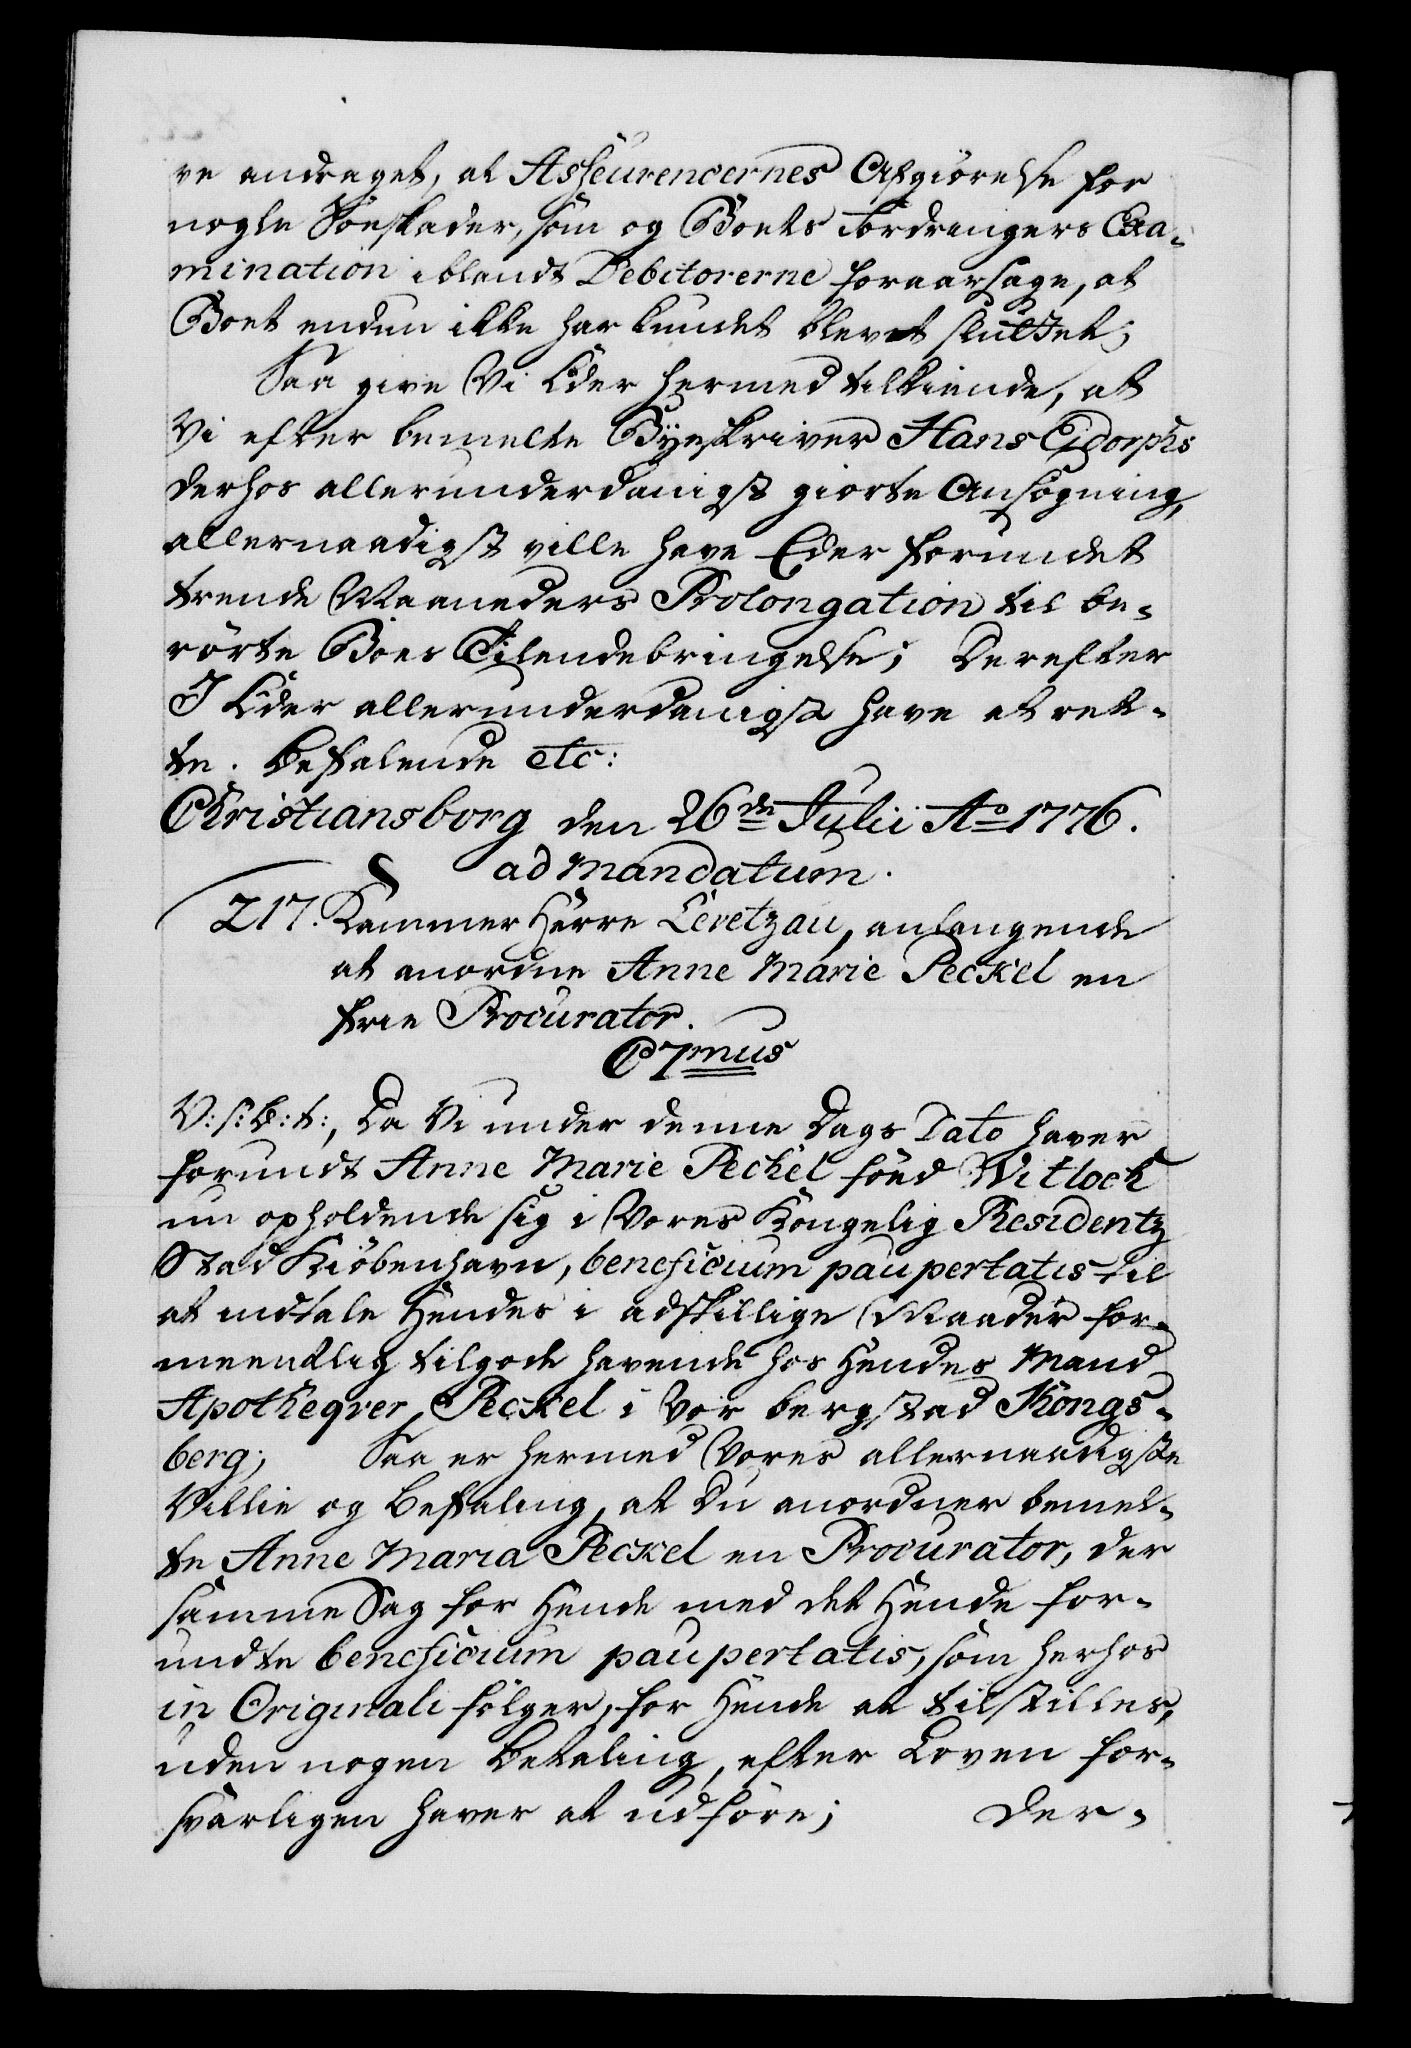 re andraget, at Asseurencernes Afgiörelse for
nogle Söeskader, som og Boets Fordringers Exa-
mination iblandt Debitorerne foraarsage, at
Boet endnu ikke har kundet blevet sluttet;
Saa give Vi Eder hermed tilkiende, at
Vi efter bemelte Byeskriver Hans Eidorphs
derhos allerunderdanigst giorte Ansögning,
allernaadigst ville have Eder forundet
trende Maaneders Prolongation til be-
rörte Boes Tilendebringelse; Derefter
I Eder allerunderdanigst have at ret-
te. Befalende etc:
Christiansborg den 26de Julii Ao 1776.
ad mandatum.
217. Kammer Herre Levetzau, anlangende
at anordne Anne Marie Peckel en
frie Procurator.
C7mus
V: s: b: t:, Da Vi under denne Dags Dato haver
forundt Anne Marie Peckel föed Witlock
nu opholdende sig i Vores Kongelig Residentz
Stad Kiöbenhavn, beneficium paupertatis til
at indtale Hendes i adskillige Maader for-
meentlig tilgode havende hos Hendes Mand
Apotheqver Peckel i Vor bergstad Kongs-
berg; Saa er hermed Vores allernaadigste
Villie og Befaling, at Du anordner bemel-
te Anne Maria Peckel en Procurator, der
samme Sag for Hende med det Hende for-
undte beneficium paupertatis, som herhos
in Originali fölger, for Hende at tilstilles,
uden nogen Betaling, efter Loven for-
svarligen haver at udföre; Der-